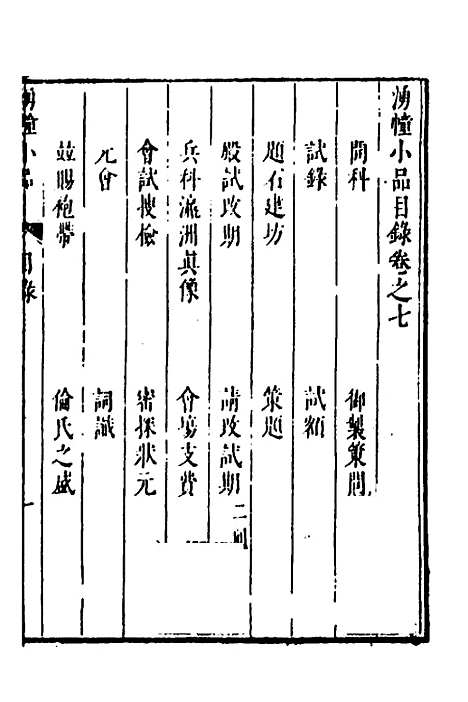 湧幢小品目錄卷之七
開科 御製策問
試錄 試額
題石建坊 策題
殿試改期 請改試期二則
兵科瀛洲真像 會塲支費
會試搜檢 密探狀元
元會 詞讖
並賜袍帶 倫氏之盛
湧幢小品 目錄 一